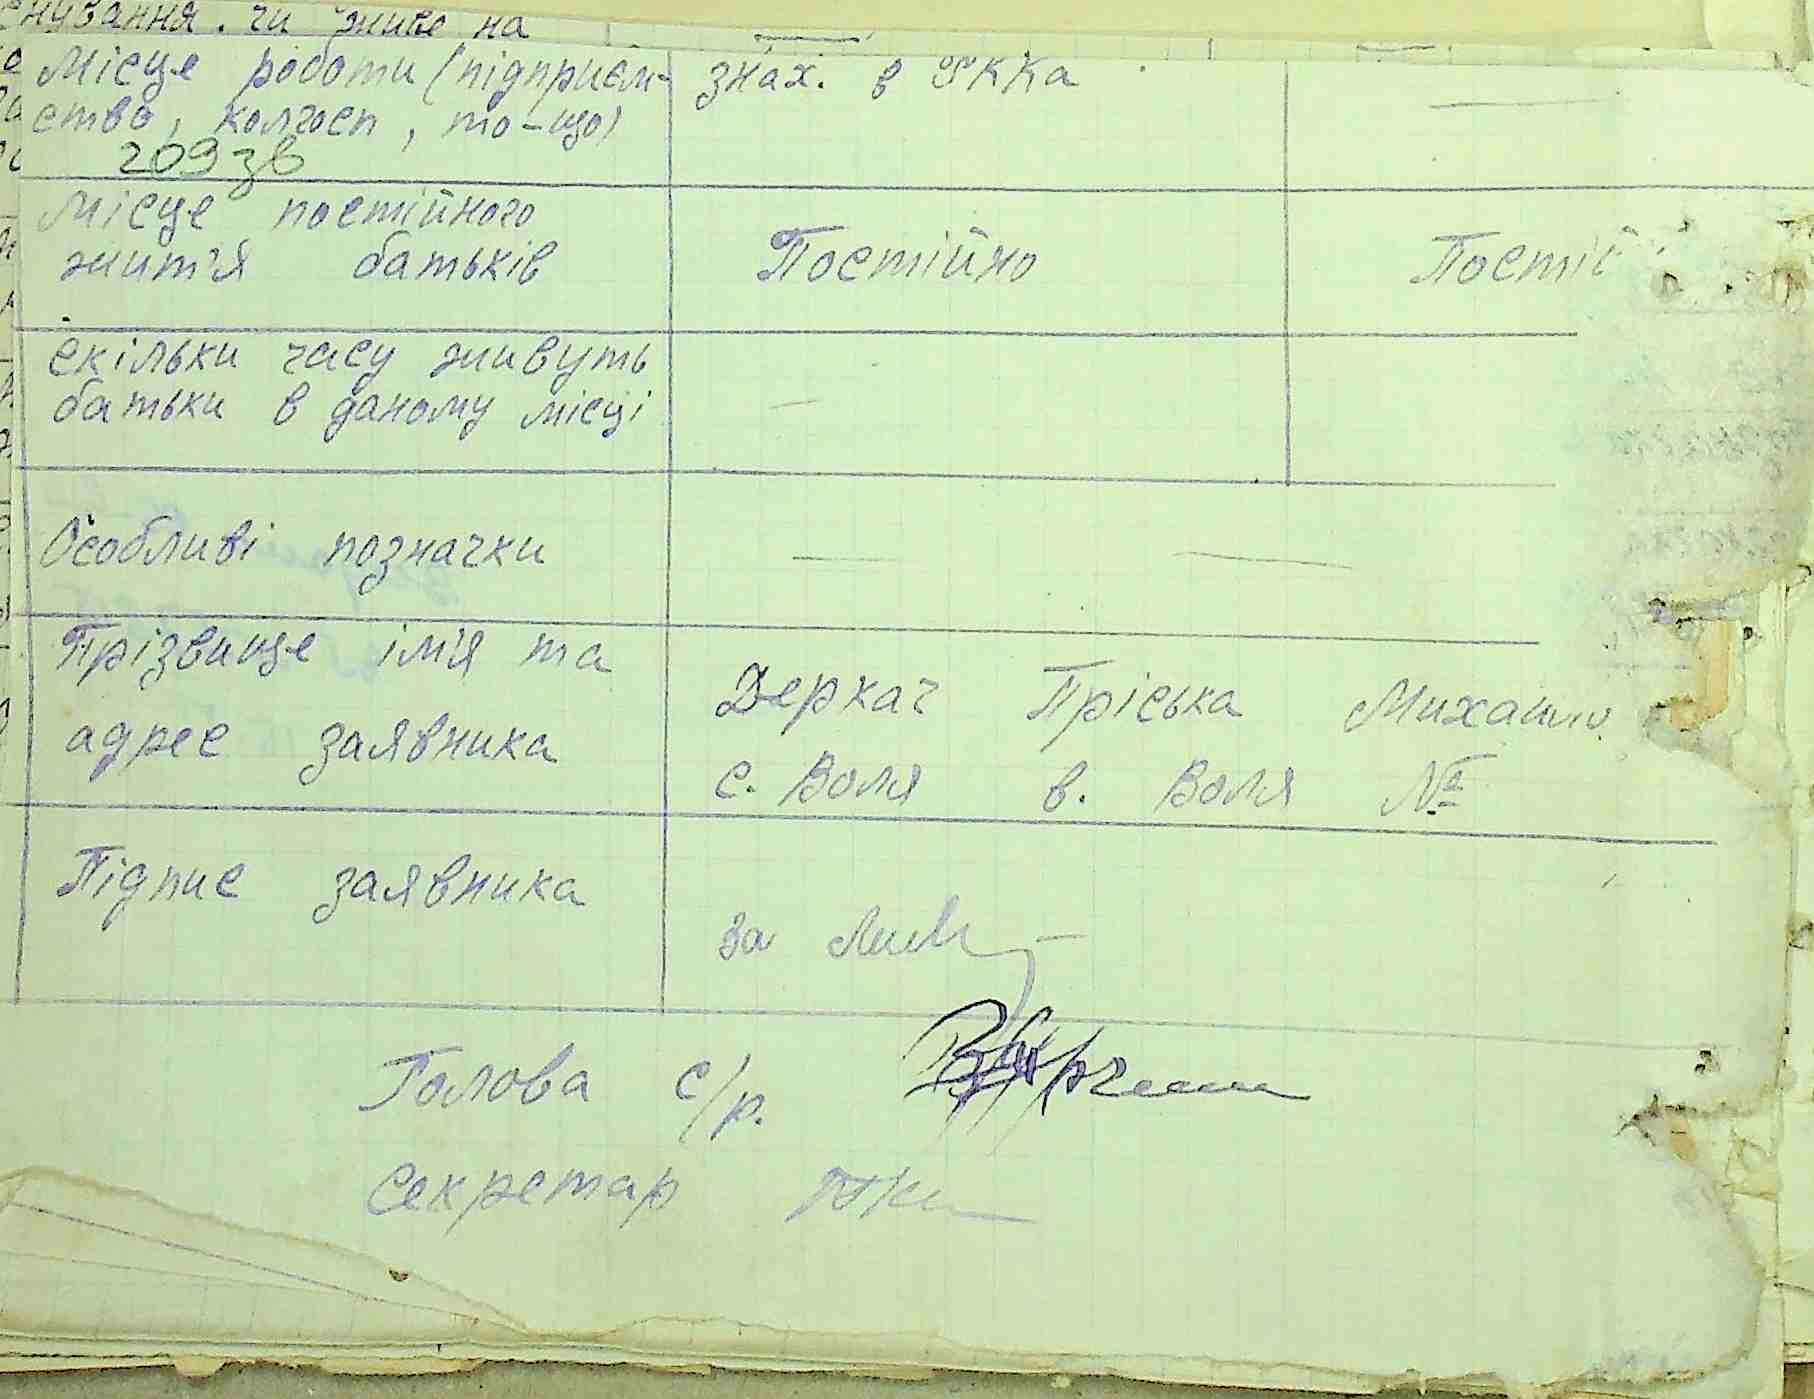 снування. чи живе на
Місце роботи (підприєм-
ство, колгосп, то-що)
знах. в РККа
209зв
Місце постійного
життя батьків
Постійно
Постій
скільки часу живуть
батьки в даному місці
—
Особливі позначки
— —
Прізвище ім'я та
адрес заявника
Деркач Пріська Михайло.
с. Воля в. Воля №
Підпис заявника
за
Голова с/р.
Секретар